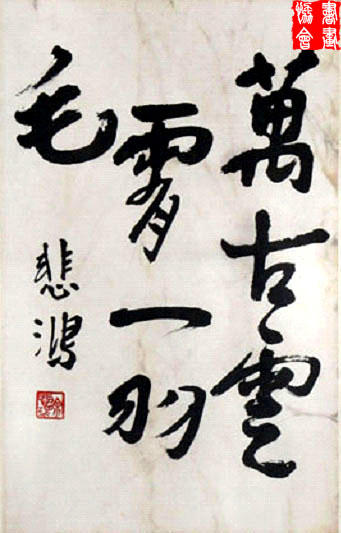 書畫
協會
萬古雲
霄一羽
毛
悲鴻